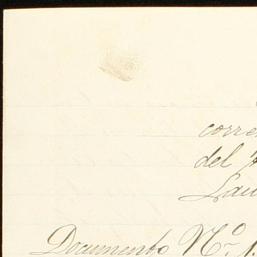 corre
del
Lau
Documento Nº 1